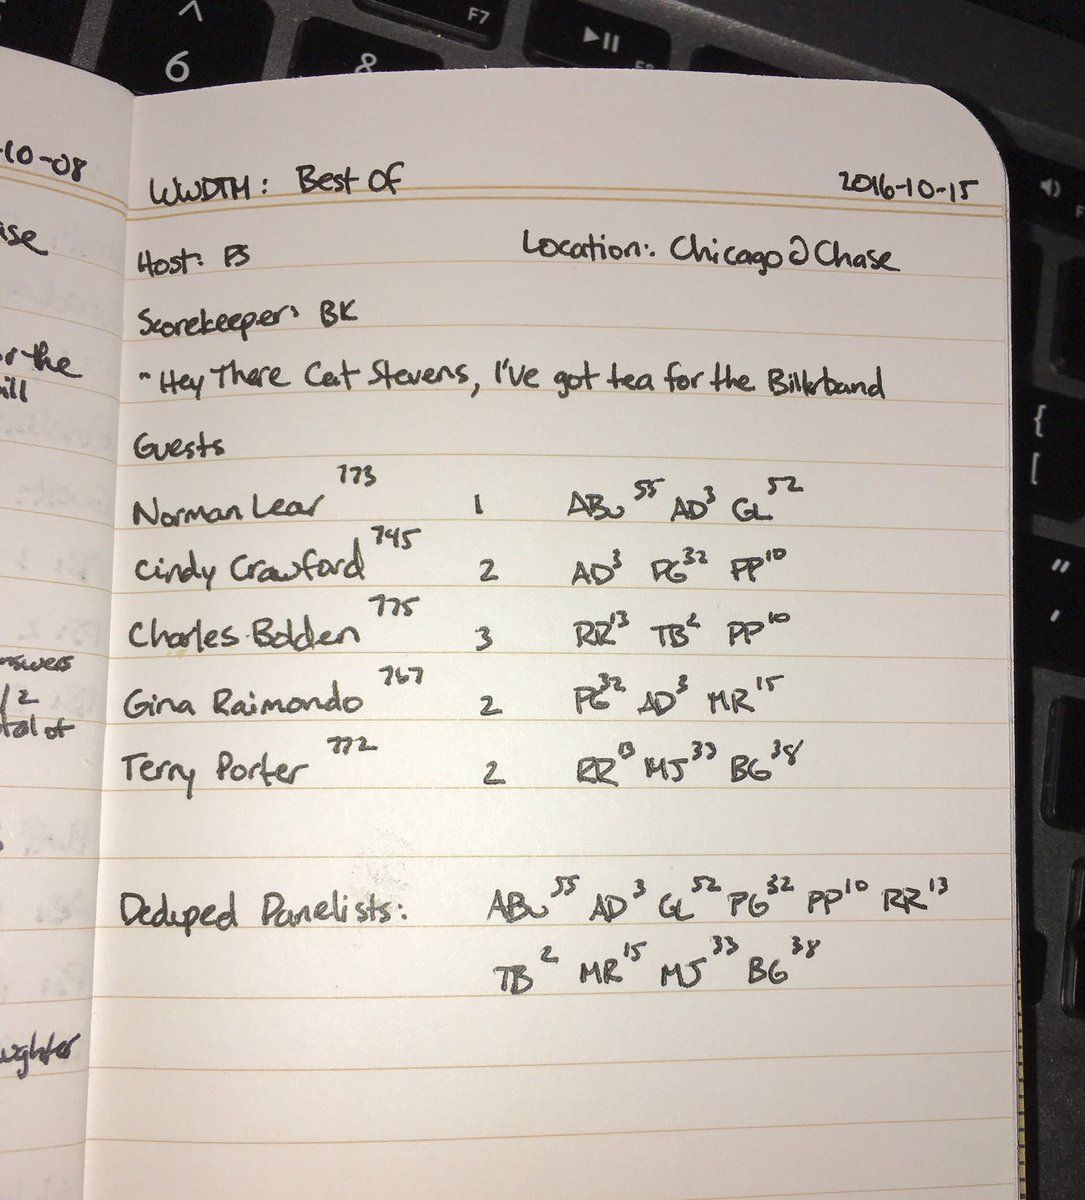 ^
6
8
F7
-10-08
WWDTM: Best Of 2016-10-15
ase
Host: PS Location: Chicago @ Chase
Scorekeeper: BK
or the
"Hey There Cat Stevens, I've got tea for the Billerband
ill
Guests
Norman Lear 773 1 ABu 55 AD 3 GL 52
Cindy Crawford 745 2 AD 3 PG 32 PP 10
Charles Bolden 775 3 RR 13 TB 2 PP 10
nswers
Gina Raimondo 767 2 PG 32 AD 3 MR 15
/2
tal of
Terry Porter 772 2 RR 13 MJ 33 BG 38
Deduped Panelists: ABu 55 AD 3 GL 52 PG 32 PP 10 RR 13
TB 2 MR 15 MJ 33 BG 38
ughter
{
[
"
'